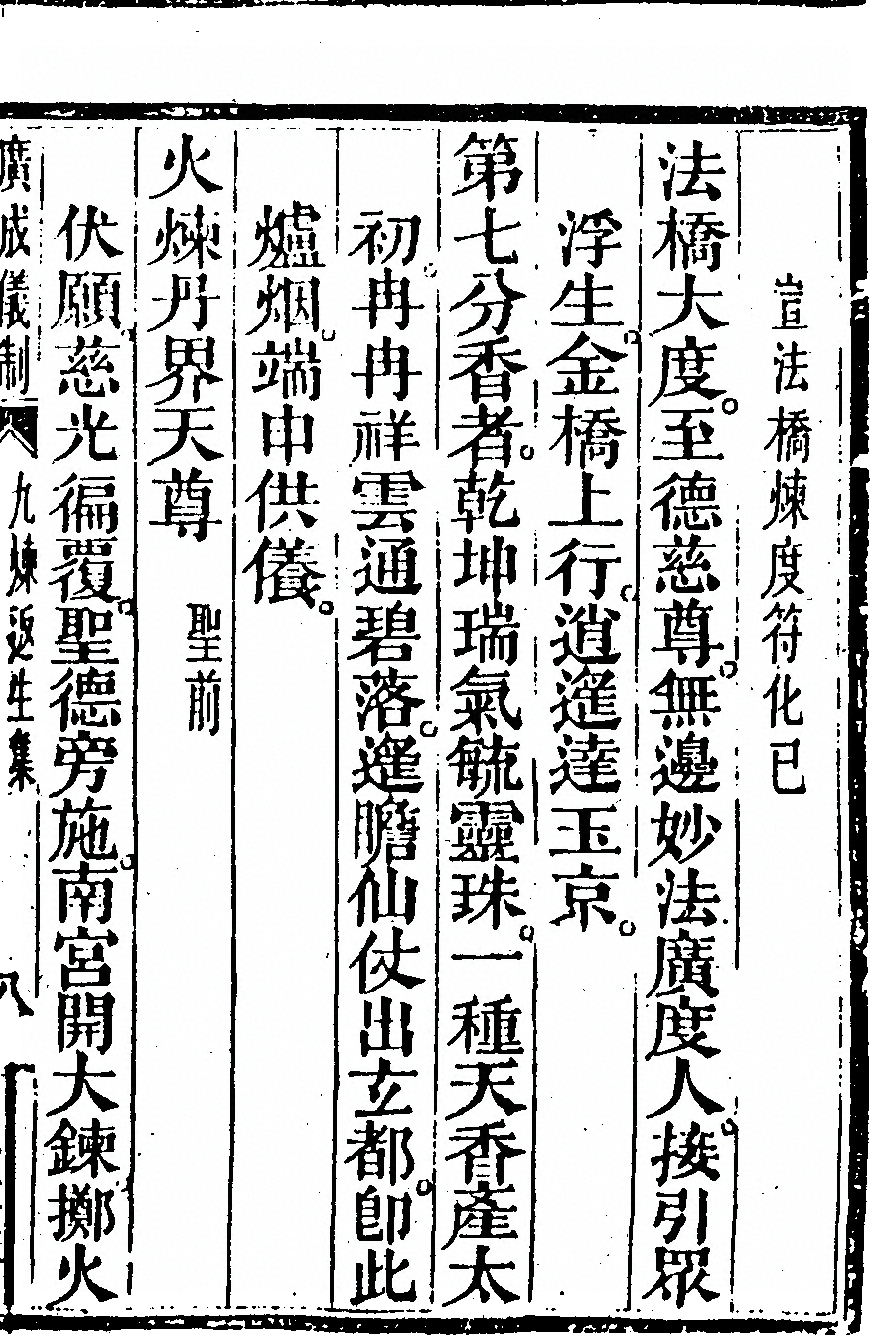 宣法橋煉度符化已
法橋大度。至德慈尊。無邊妙法廣度人。接引眾
浮生。金橋上行。逍遥達玉京。
第七分香者。乾坤瑞氣毓靈珠。一種天香產太
初。冉冉祥雲通碧落。遥瞻仙仗出立都。卽此
爐烟。端申供儀。
火煉丹界天尊 聖前
伏願。慈光徧覆。聖德旁施。南宮開大鍊。擲火
廣成儀制 九煉返生集 八